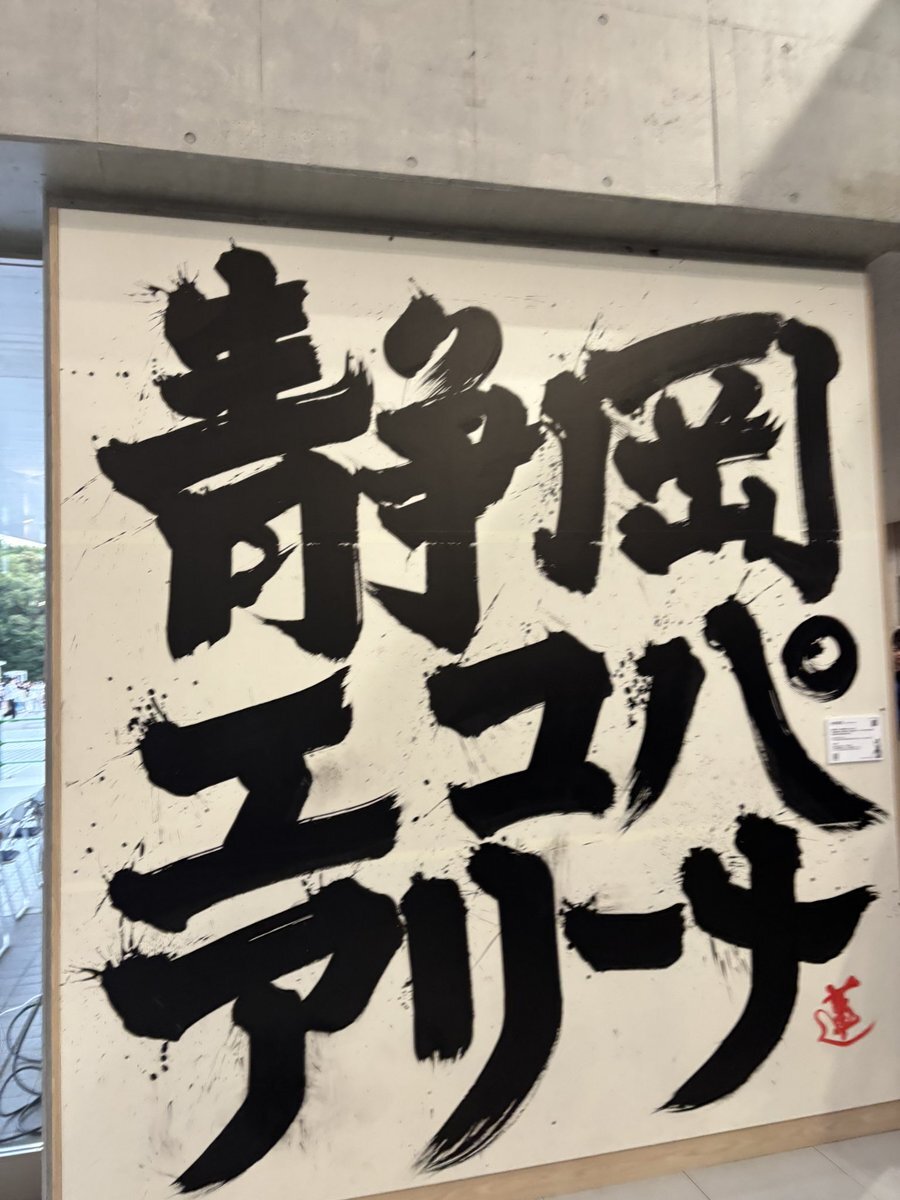 静岡
エコパ
アリーナ
蓮